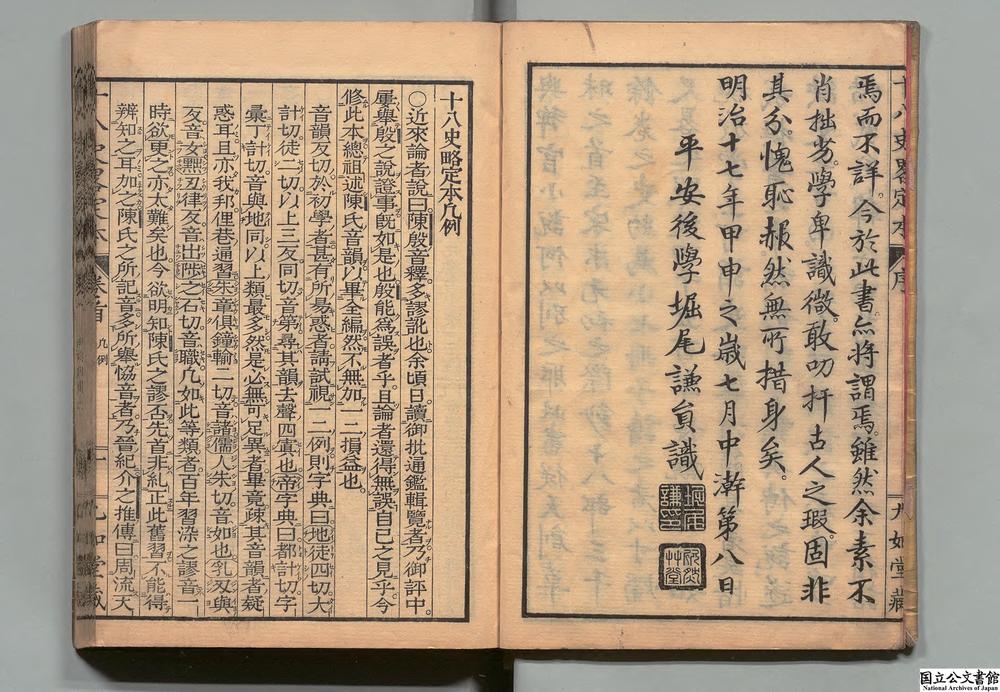 焉而不詳今於此書亦將謂焉雖然余素不
肖拙劣學卑識微敢叨扞古人之瑕固非
其分愧恥赧然無所措身矣
明治十七年甲申之歲七月中澣第八日
平安後學堀尾謙貟識
十八史略定本
序
九如堂藏
十八史略定本凡例
○近來論者說曰陳殷音釋多謬訛也余頃日讀御批通鑑輯覽者乃御評中
屢舉殷之說證事旣如是也殷能爲誤者乎且論者還得無誤自己之見乎今
修此本總祖述陳氏音韻以畢全編然不無加一二損益也
音韻反切於初學者甚有所易惑者請試視一二例則字典曰地徒四切大
計切徒二切以上三反同切音第尋其韻去聲四寘也帝字典曰都計切字
彙丁計切音與地同以上類最多然是必無可足異者畢竟疎其音韻者疑
惑耳且亦我邦俚巷通習朱章俱鐘輸二切音諸儒人朱切音如也乳反與
反音女熙丑律反音出陟之石切音職凡如此等類者百年習染之謬音一
時欲更之亦太難矣也今欲明知陳氏之謬否先首非糺正此舊習不能得
辨知之耳加之陳氏之所記音多所舉恊音者乃晉紀介之推傳曰周流天
卷之首
凡例
一
九如堂藏
国立公文書館
National Archives of Japan